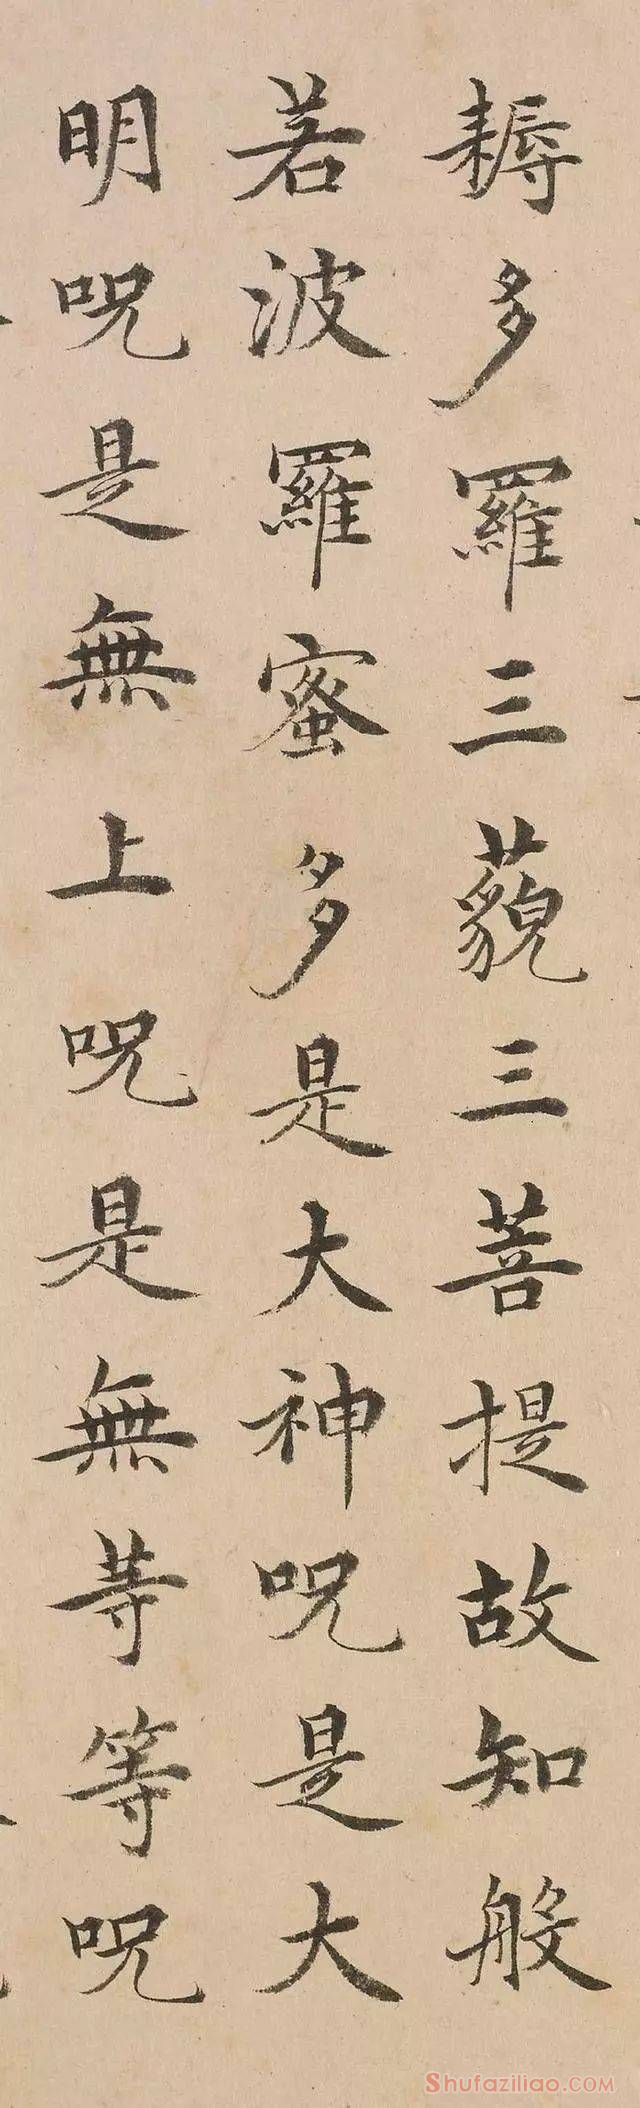 耨多羅三藐三菩提故知般
若波羅蜜多是大神呪是大
明呪是無上呪是無等等呪
Shufaziliao.COM